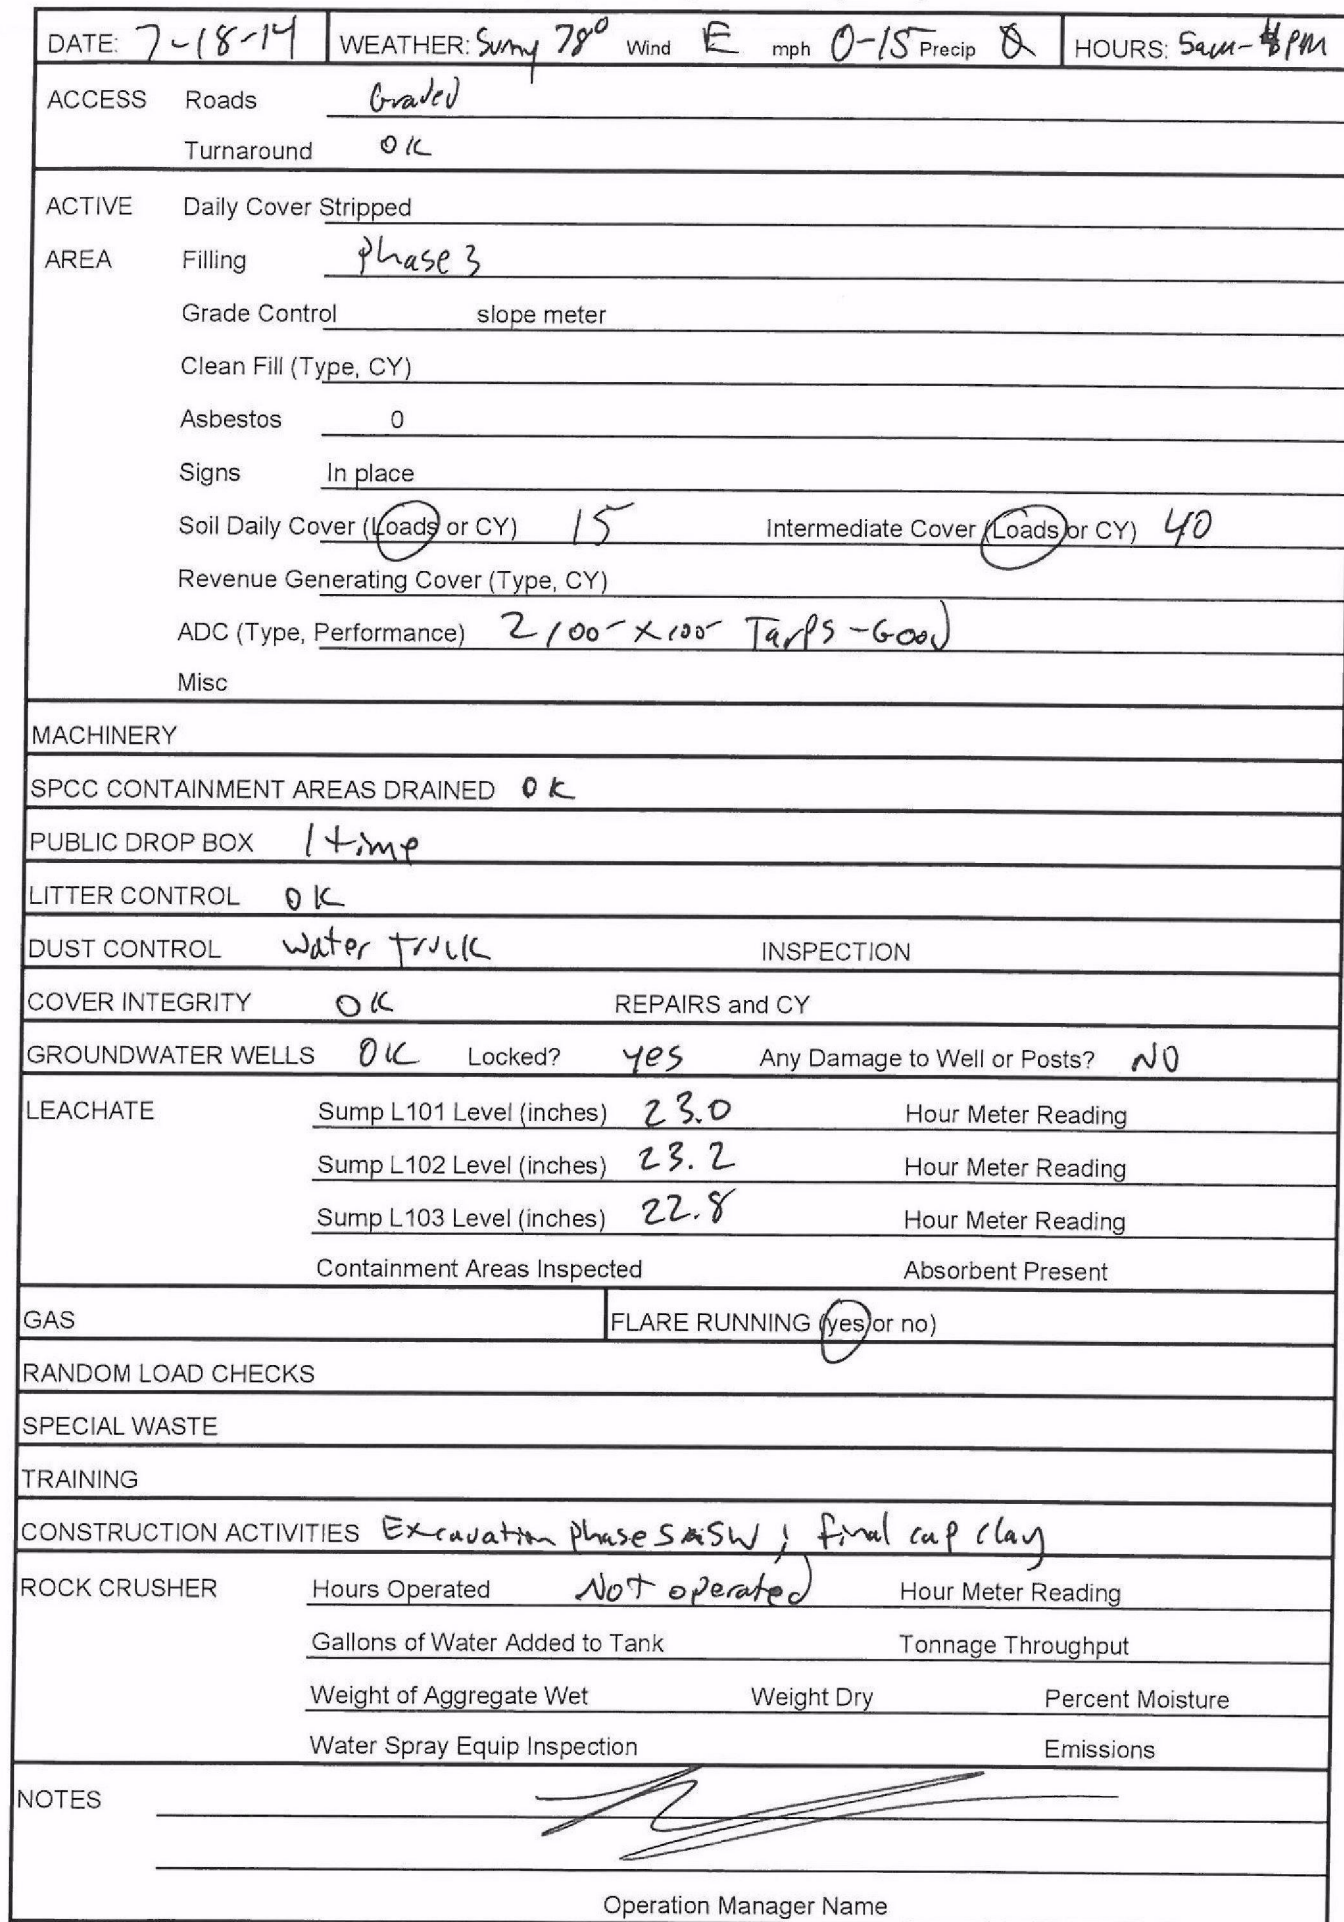 DATE: 7-18-14 WEATHER: Sunny 78° Wind E mph 0-15 Precip 0 HOURS: 5am- PM
ACCESS Roads Graded
Turnaround OK
ACTIVE Daily Cover Stripped
AREA Filling Phase 3
Grade Control slope meter
Clean Fill (Type, CY)
Asbestos 0
Signs In place
Soil Daily Cover (Loads or CY) 15 Intermediate Cover (Loads or CY) 40
Revenue Generating Cover (Type, CY)
ADC (Type, Performance) 2 100- x 100- Tarps - Good
Misc
MACHINERY
SPCC CONTAINMENT AREAS DRAINED OK
PUBLIC DROP BOX 1 time
LITTER CONTROL OK
DUST CONTROL water truck INSPECTION
COVER INTEGRITY OK REPAIRS and CY
GROUNDWATER WELLS OK Locked? yes Any Damage to Well or Posts? NO
LEACHATE Sump L101 Level (inches) 23.0 Hour Meter Reading
Sump L102 Level (inches) 23.2 Hour Meter Reading
Sump L103 Level (inches) 22.8 Hour Meter Reading
Containment Areas Inspected Absorbent Present
GAS FLARE RUNNING (yes or no)
RANDOM LOAD CHECKS
SPECIAL WASTE
TRAINING
CONSTRUCTION ACTIVITIES Excavation phase ; final cap clay
ROCK CRUSHER Hours Operated Not operated Hour Meter Reading
Gallons of Water Added to Tank Tonnage Throughput
Weight of Aggregate Wet Weight Dry Percent Moisture
Water Spray Equip Inspection Emissions
NOTES
Operation Manager Name